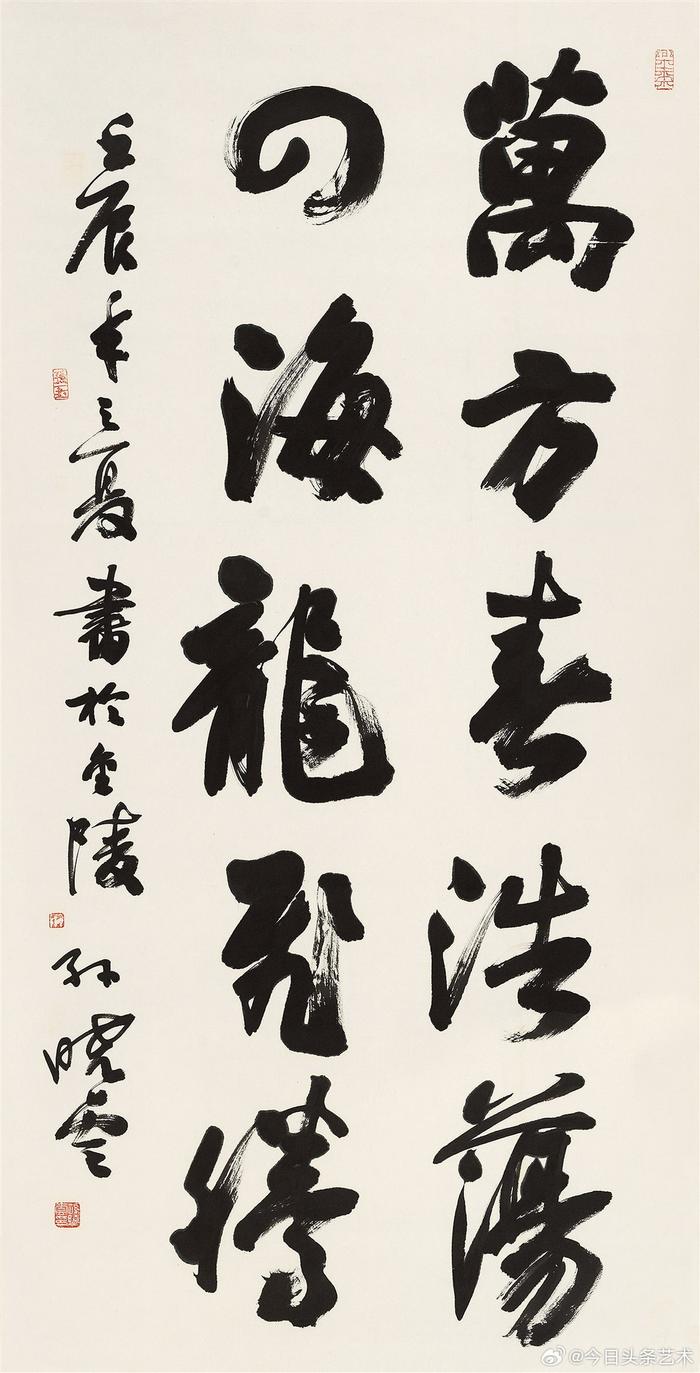 萬方春浩蕩
四海龍飛騰
壬辰年之夏書於金陵 孫曉雲
@今日头条艺术